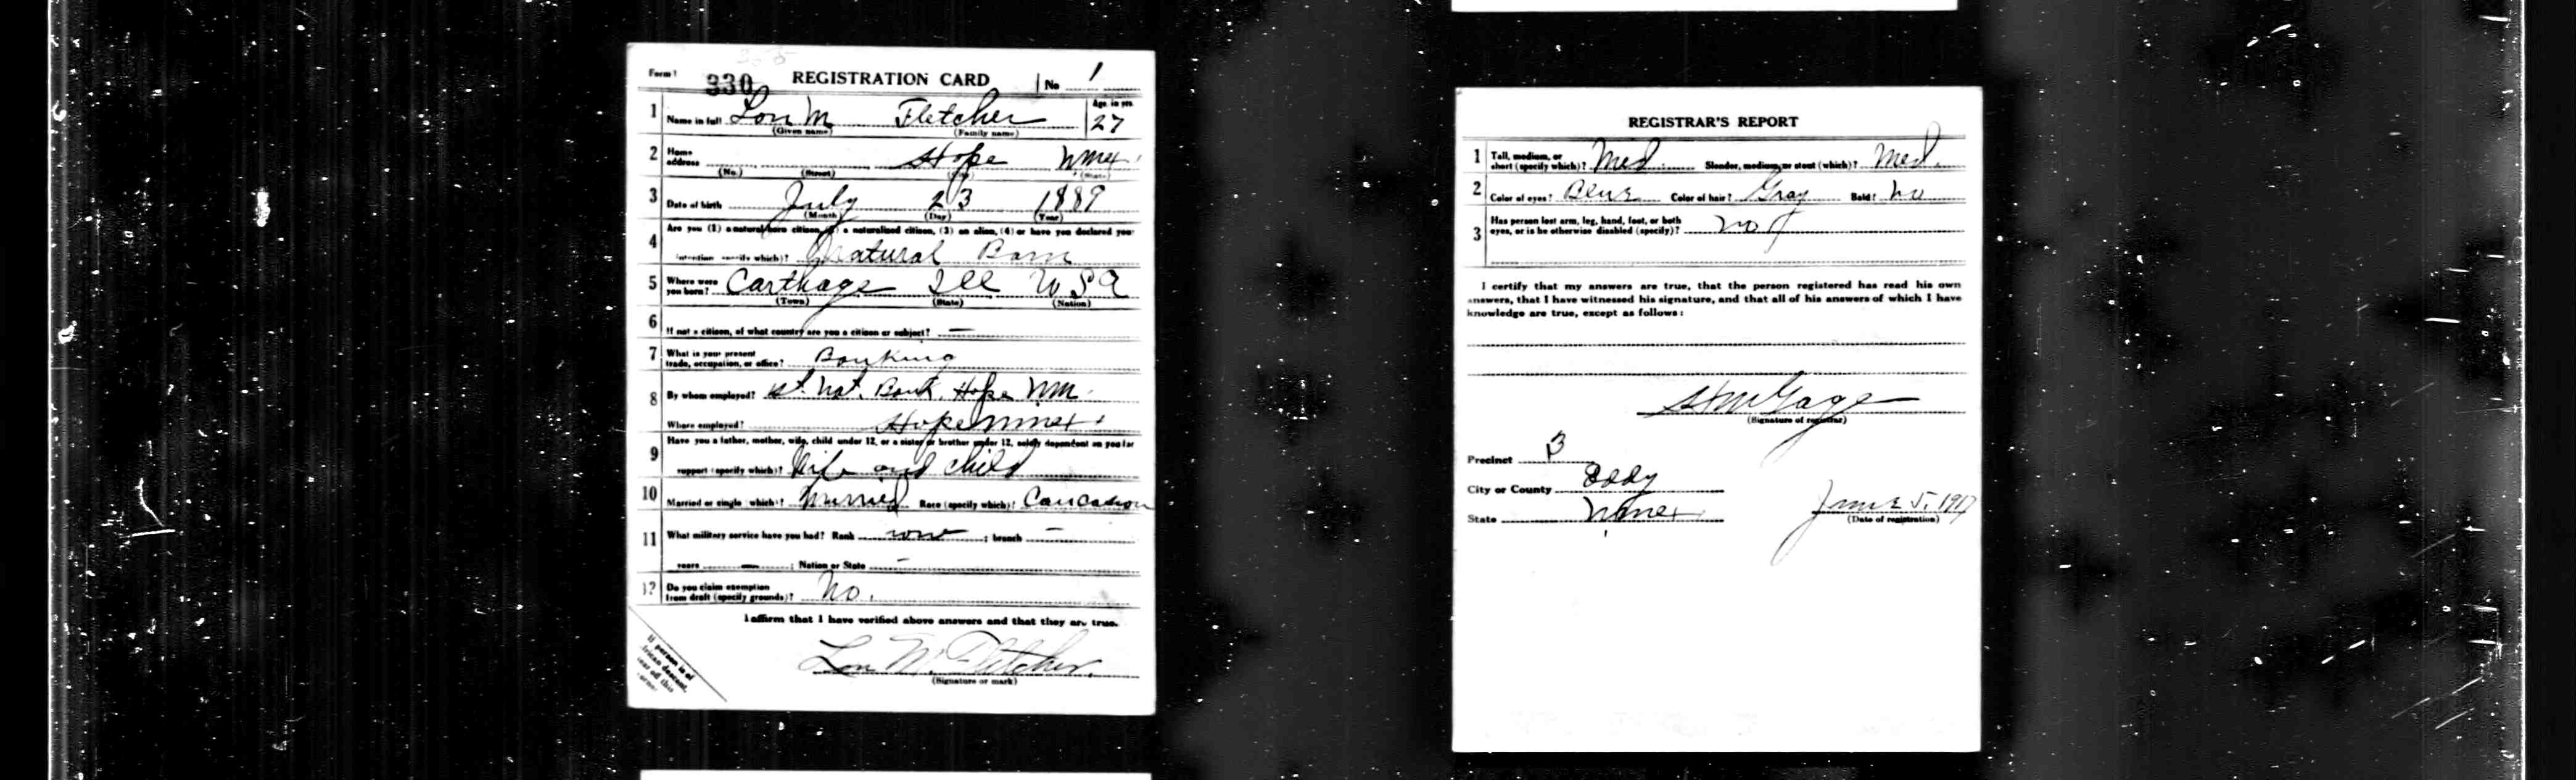 Form 1 330 REGISTRATION CARD No 1
1 Name in full Lon M Fletcher Age, in yrs. 27
(Given name) (Family name)
2 Home address Hope N Mex.
(No.) (Street) (City) (State)
3 Date of birth July 23 1889
(Month) (Day) (Year)
4 Are you (1) a natural born citizen, (2) a naturalized citizen, (3) an alien, (4) or have you declared your
intention (specify which)? Natural Born
5 Where were you born? Carthage Ill U S A
(Town) (State) (Nation)
6 If not a citizen, of what country are you a citizen or subject? —
7 What is your present trade, occupation, or office? Banking
8 By whom employed? 1st. Nat. Bank. Hope NM.
Where employed? Hope N Mex.
9 Have you a father, mother, wife, child under 12, or a sister or brother under 12, solely dependent on you for
support (specify which)? Wife and child
10 Married or single (which)? Married Race (specify which)? Caucasion
11 What military service have you had? Rank none ; branch —
years — ; Nation or State —
12 Do you claim exemption from draft (specify grounds)? No.
I affirm that I have verified above answers and that they are true.
Lon M. Fletcher.
(Signature or mark)
If person is of
African descent,
tear off this
corner
REGISTRAR'S REPORT
1 Tall, medium, or short (specify which)? Med Slender, medium, or stout (which)? Med.
2 Color of eyes? Blue Color of hair? Gray Bald? No
3 Has person lost arm, leg, hand, foot, or both
eyes, or is he otherwise disabled (specify)? not
I certify that my answers are true, that the person registered has read his own
answers, that I have witnessed his signature, and that all of his answers of which I have
knowledge are true, except as follows:
Gage
(Signature of registrar)
Precinct 3
City or County Eddy
State N Mex
June 5. 1917
(Date of registration)